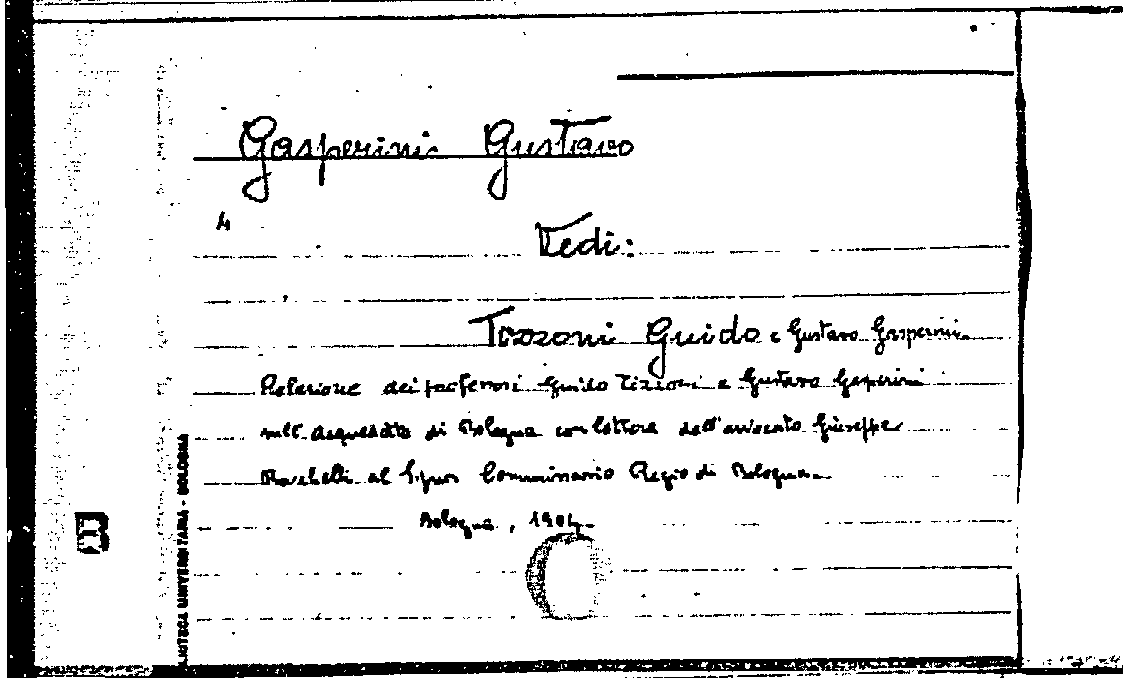 Gasperini Gustavo
4
Vedi:
Tozzoni Guido e Gustavo Gasperini
Relazione dei professori Guido Tizzoni e Gustavo Gasperini
sull'acquedotto di Bologna con lettera dell'avvocato Giuseppe
al Signor Commissario Regio di Bologna.
Bologna, 1904.
BIBLIOTECA UNIVERSITARIA - BOLOGNA